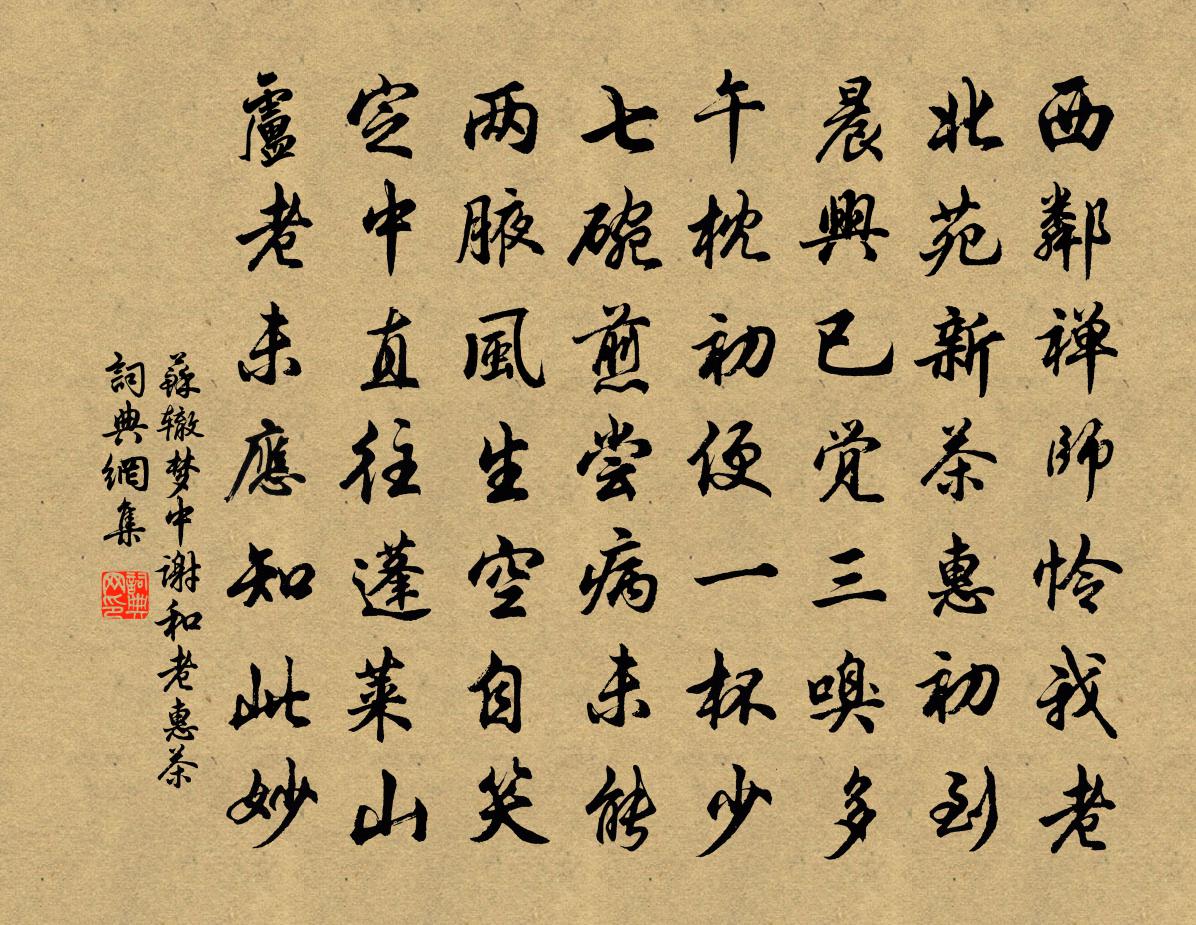 西鄰禅師怜我老
北苑新茶惠初到
晨興已觉三嗅多
午枕初便一杯少
七碗煎尝病未能
两腋風生空自笑
定中直往蓬莱山
盧老未應知此妙
蘇辙梦中谢和老惠茶
詞典網集
詞典网印